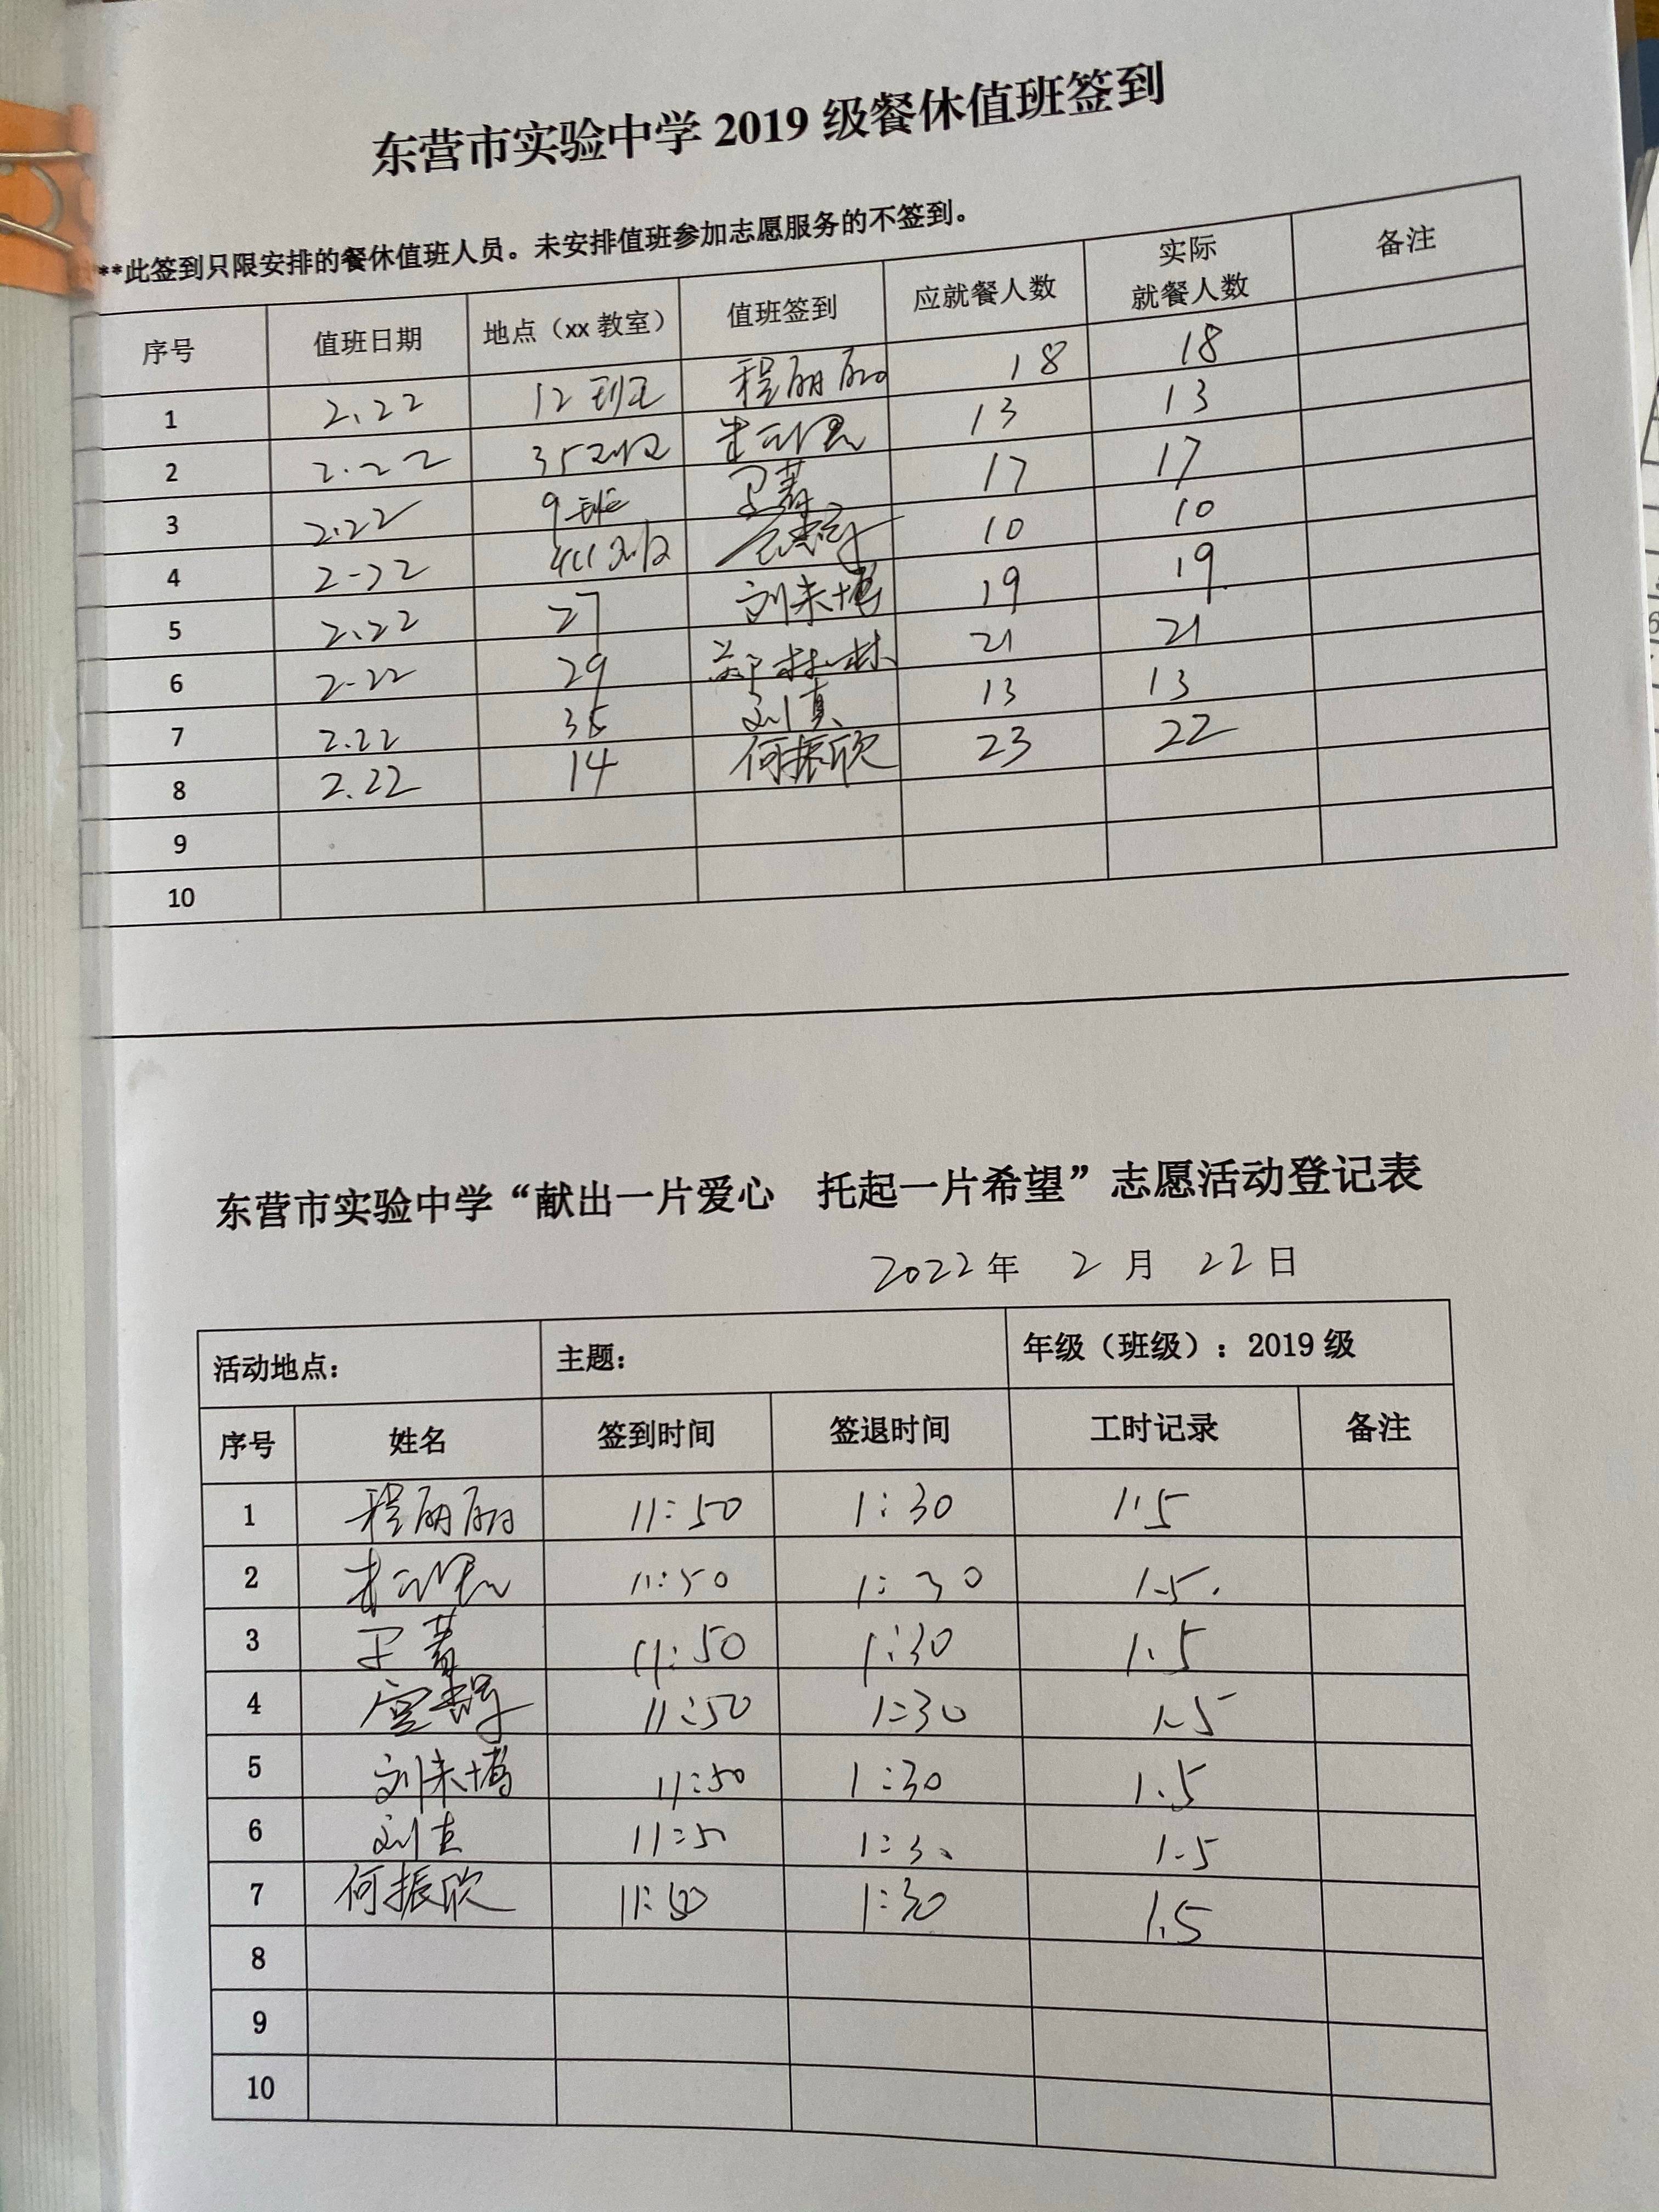 东营市实验中学 2019 级餐休值班签到
**此签到只限安排的餐休值班人员。未安排值班参加志愿服务的不签到。
序号 值班日期 地点（xx 教室） 值班签到 应就餐人数 实际就餐人数 备注
1 2.22 12 班 程丽丽 18 18
2 2.22 35 13 13
3 2.22 9 班 卫菁 17 17
4 2-22 10 10
5 2.22 27 刘来博 19 19
6 2-22 29 郑林林 21 21
7 2.22 刘真 13 13
8 2.22 14 何振欣 23 22
9
10
东营市实验中学“献出一片爱心 托起一片希望”志愿活动登记表
2022 年 2 月 22 日
活动地点： 主题： 年级（班级）：2019 级
序号 姓名 签到时间 签退时间 工时记录 备注
1 程丽丽 11:50 1:30 1.5
2 11:50 1:30 1.5.
3 卫菁 11:50 1:30 1.5
4 11:50 1:30 1.5
5 刘来博 11:50 1:30 1.5
6 刘真 11:50 1:30 1.5
7 何振欣 11:50 1:30 1.5
8
9
10